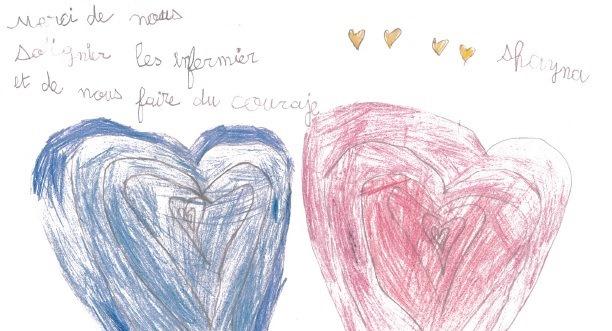 Merci de nous
soignier les infermier
shayna
et de nous faire du couraje